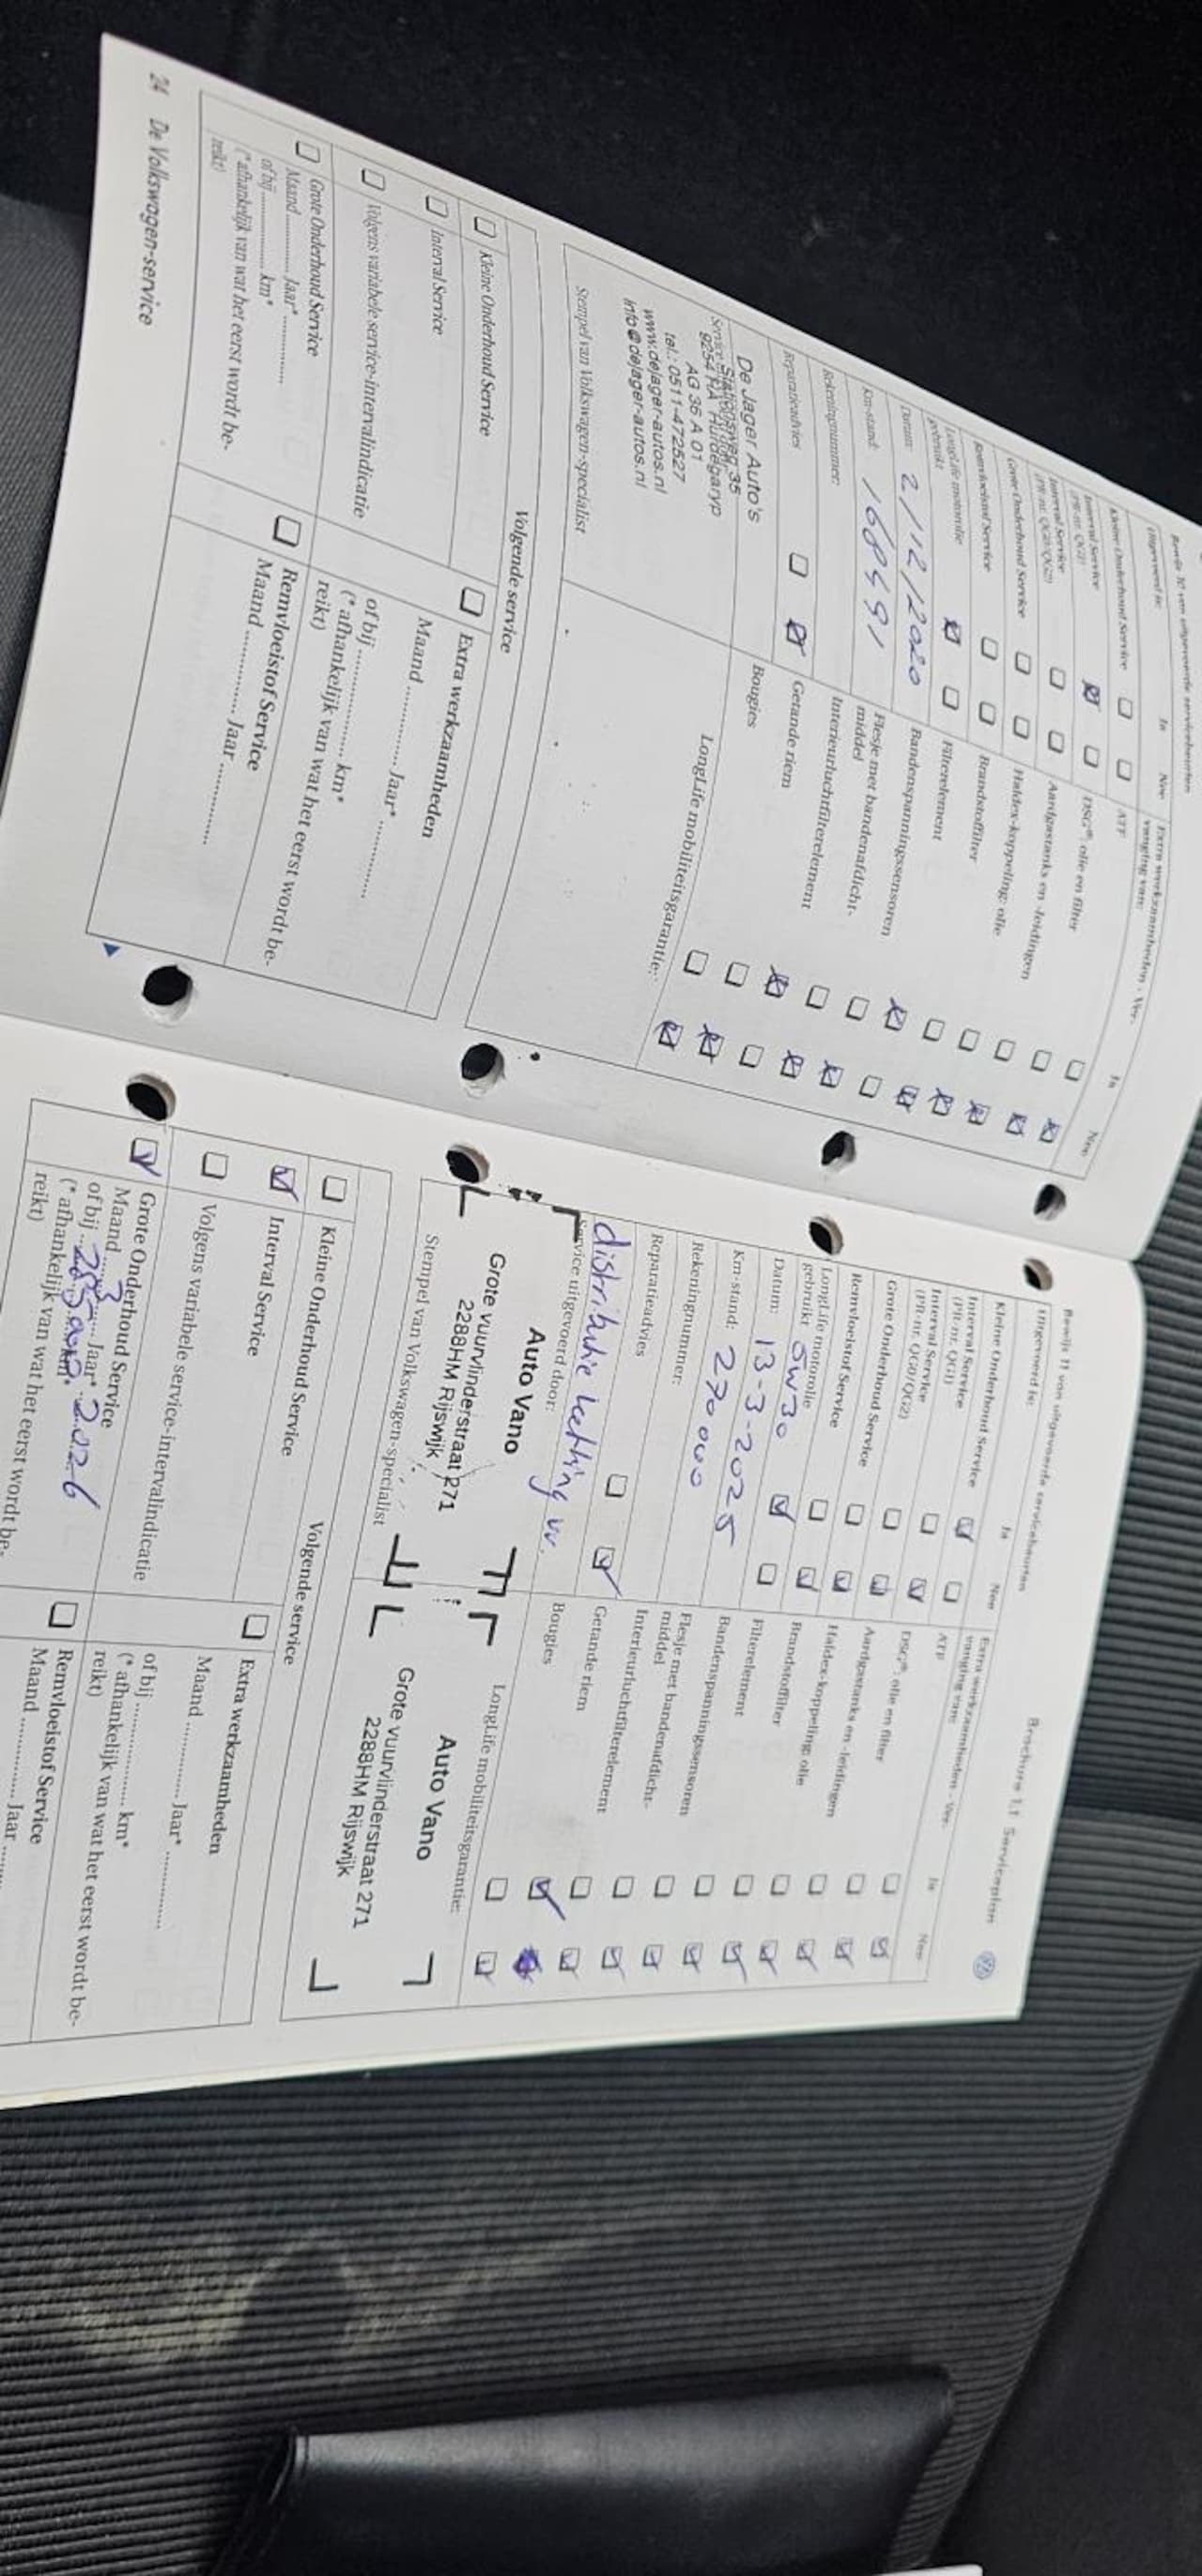 Bewijs 10 van uitgevoerde servicebeurten
Uitgevoerd is:
Ja
Nee
Kleine Onderhoud Service
Interval Service
(PR-nr. QG1)
Interval Service
(PR-nr. QG0/QG2)
Grote Onderhoud Service
Remvloeistof Service
LongLife motorolie
gebruikt
Datum: 21/12/2020
Km-stand: 168491
Rekeningnummer:
Reparatieadvies
De Jager Auto's
Stationsweg 35
9254 HA Hurdegaryp
AG 35 A 01
tel.: 0511-472527
www.dejager-autos.nl
info@dejager-autos.nl
Stempel van Volkswagen-specialist
Extra werkzaamheden - Ver-
vanging van:
Ja
Nee
ATF
DSG®: olie en filter
Aardgastanks en -leidingen
Haldex-koppeling: olie
Brandstoffilter
Filterelement
Bandenspanningssensoren
Flesje met bandenafdicht-
middel
Interieurluchtfilterelement
Getande riem
Bougies
LongLife mobiliteitsgarantie:
Volgende service
Kleine Onderhoud Service
Interval Service
Volgens variabele service-intervalindicatie
Grote Onderhoud Service
Maand ............ Jaar* ............
of bij ............ km*
(* afhankelijk van wat het eerst wordt be-
reikt)
Extra werkzaamheden
Maand ............ Jaar* ............
of bij ............ km*
(* afhankelijk van wat het eerst wordt be-
reikt)
Remvloeistof Service
Maand ............ Jaar ............
24 De Volkswagen-service
Brochure 1.1 Serviceplan
Bewijs 11 van uitgevoerde servicebeurten
Uitgevoerd is:
Ja
Nee
Kleine Onderhoud Service
Interval Service
(PR-nr. QG1)
Interval Service
(PR-nr. QG0/QG2)
Grote Onderhoud Service
Remvloeistof Service
LongLife motorolie
gebruikt 5W30
Datum: 13-3-2025
Km-stand: 270000
Rekeningnummer:
Reparatieadvies
distributie ketting vv.
Service uitgevoerd door:
Auto Vano
Grote vuurvlinderstraat 271
2288HM Rijswijk
Stempel van Volkswagen-specialist
Extra werkzaamheden - Ver-
vanging van:
Ja
Nee
ATF
DSG®: olie en filter
Aardgastanks en -leidingen
Haldex-koppeling: olie
Brandstoffilter
Filterelement
Bandenspanningssensoren
Flesje met bandenafdicht-
middel
Interieurluchtfilterelement
Getande riem
Bougies
LongLife mobiliteitsgarantie:
Auto Vano
Grote vuurvlinderstraat 271
2288HM Rijswijk
Volgende service
Kleine Onderhoud Service
Interval Service
Volgens variabele service-intervalindicatie
Grote Onderhoud Service
Maand 3 Jaar* 2026
of bij km*
(* afhankelijk van wat het eerst wordt be-
reikt)
Extra werkzaamheden
Maand ............ Jaar* ............
of bij ............ km*
(* afhankelijk van wat het eerst wordt be-
reikt)
Remvloeistof Service
Maand ............ Jaar ............